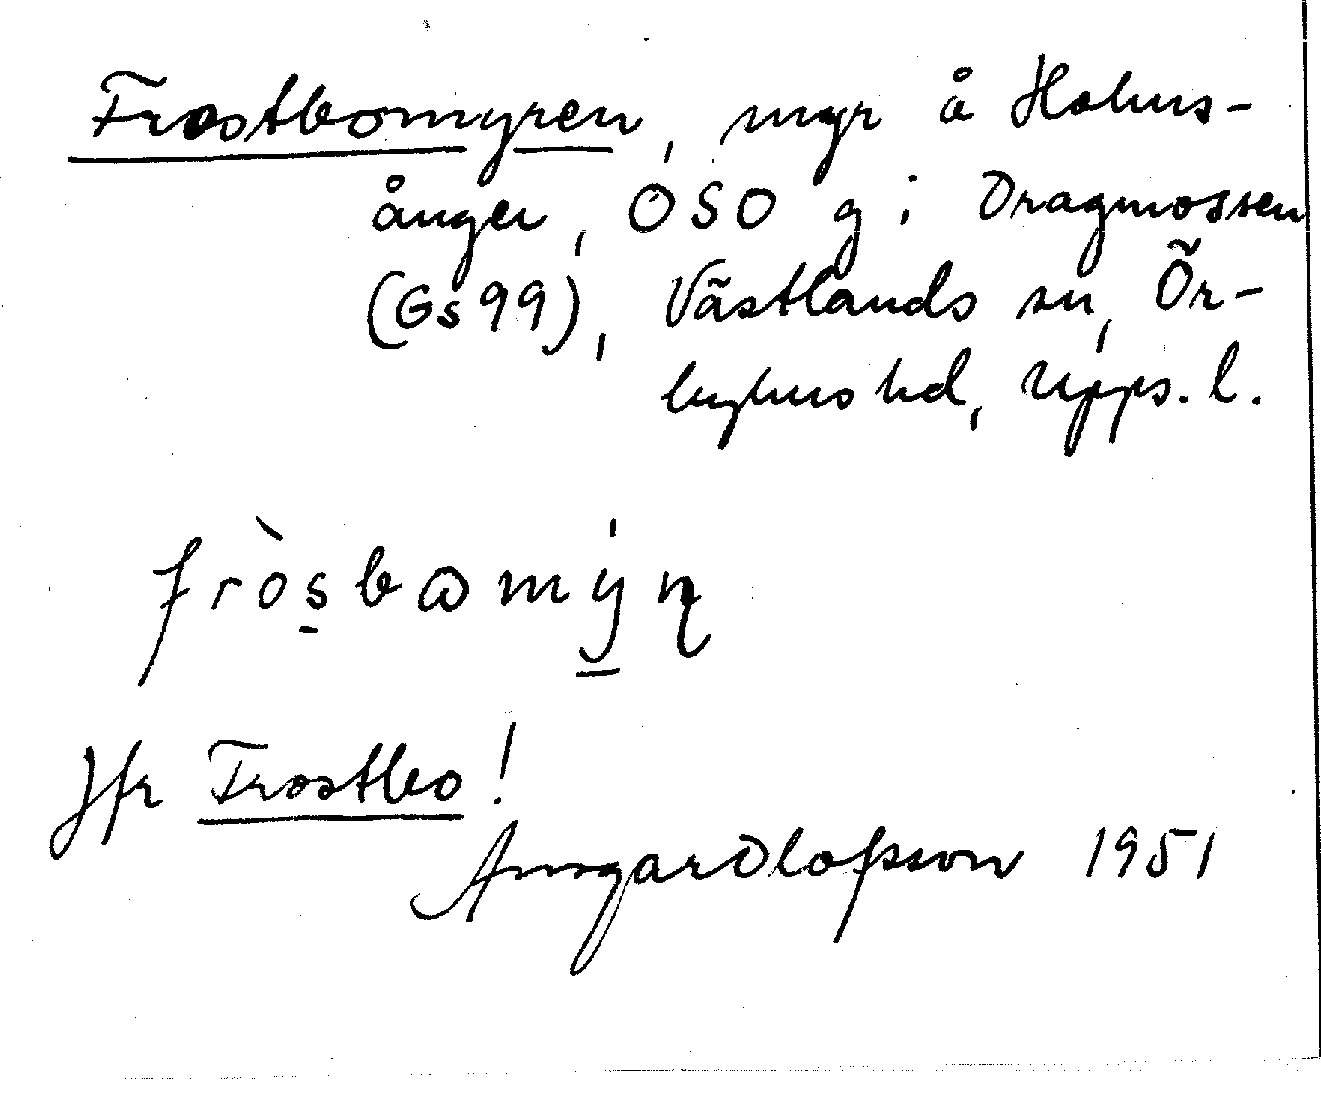 Frostbomyren, myr å Hohus-
ånger, OSO g i Dragmossen
(Gs 99), Västlands sn, Ör-
byhus hd, Upps. l.
fròsbωmýn
Jfr Frostbo!
Ansgar Olofsson 1951